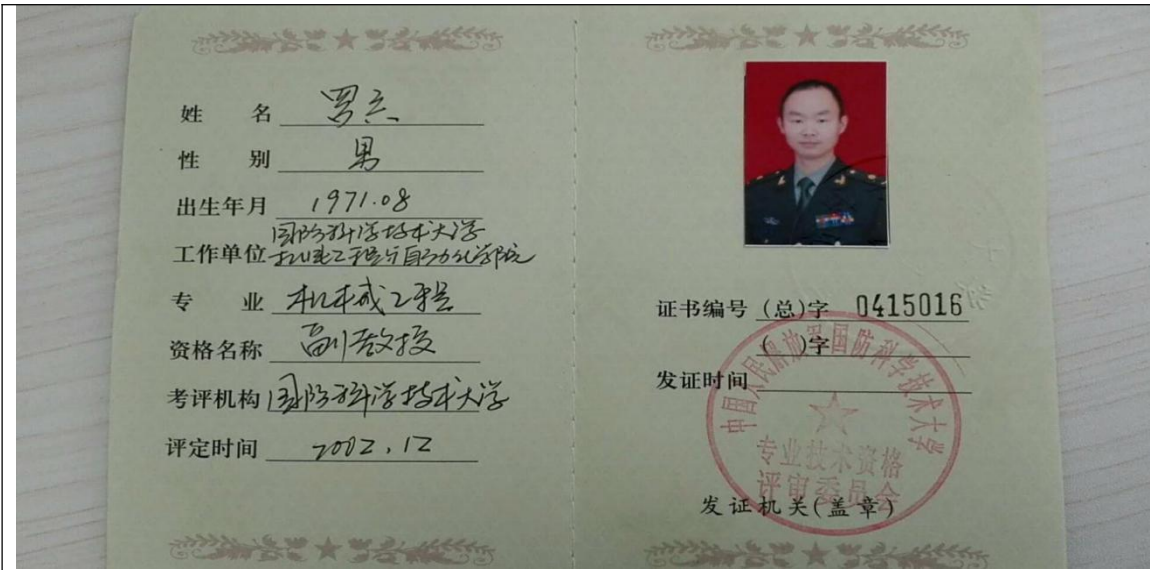 姓 名 罗云
性 别 男
出生年月 1971.08
工作单位 国防科学技术大学
机电工程与自动化学院
专 业 机械工程
资格名称 副教授
考评机构 国防科学技术大学
评定时间 2002.12
证书编号 (总)字 0415016
( )字
发证时间
中国人民解放军国防科学技术大学
专业技术资格
评审委员会
发证机关(盖章)